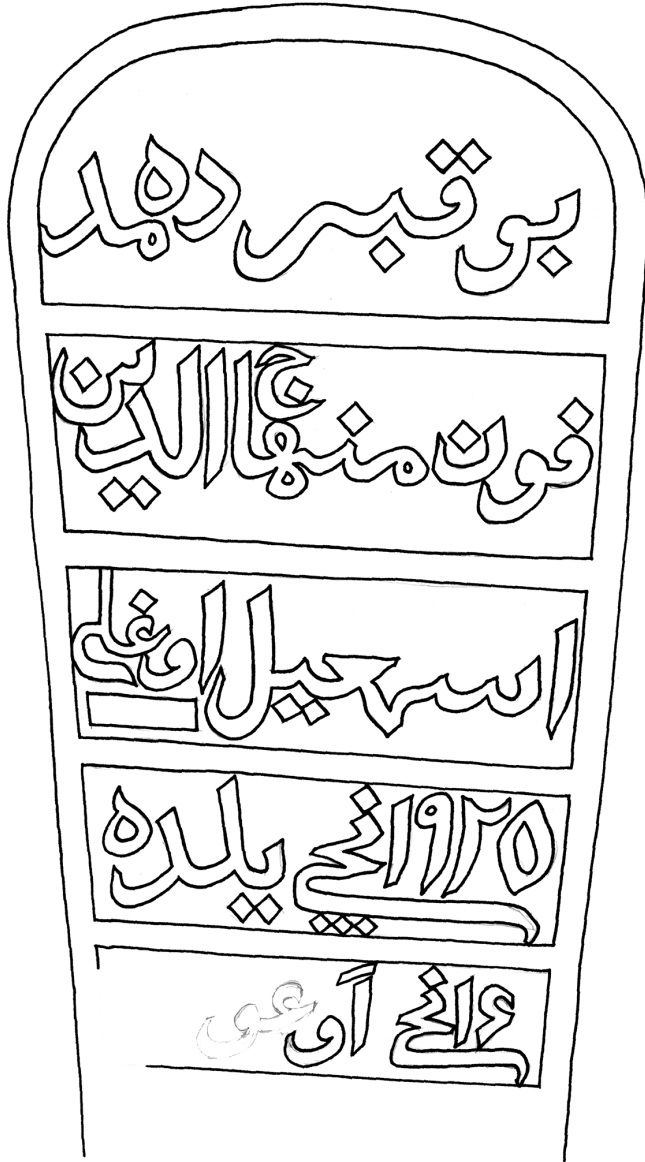 بو قبرده مد
فون منهاج الدين
اسمعيل اوغلى
١٩٢٥ نچى يلده
١۶ نچى آوغو